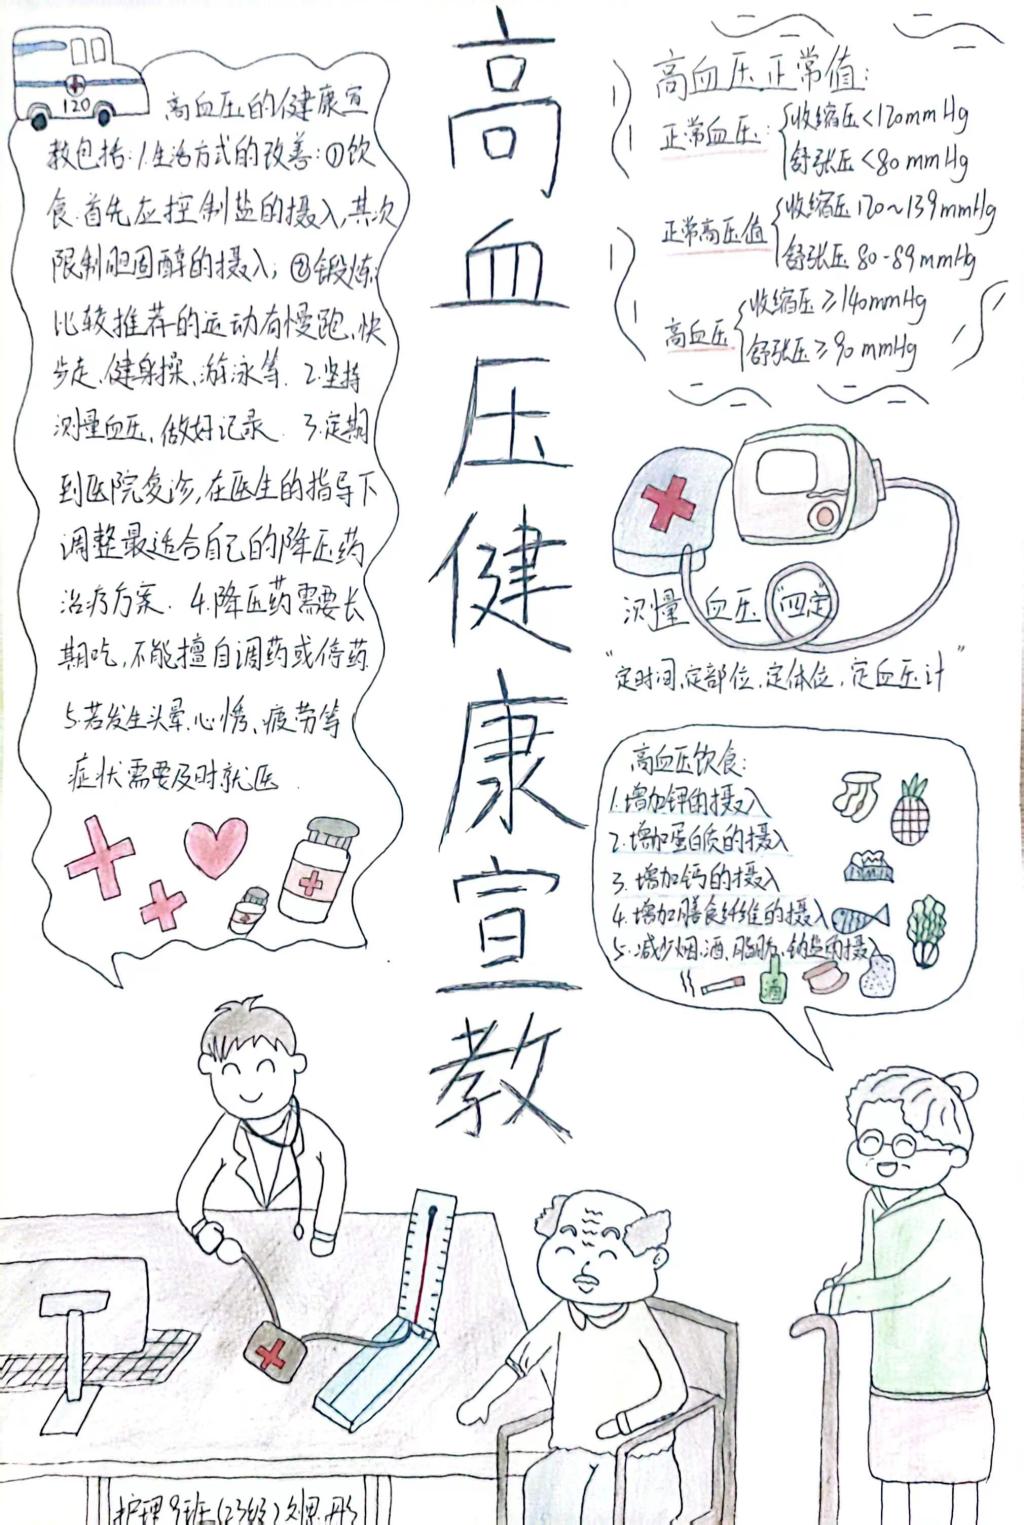 高血压健康宣教
120
高血压的健康宣
教包括:1.生活方式的改善:①饮
食.首先应控制盐的摄入,其次
限制胆固醇的摄入;②锻炼:
比较推荐的运动有慢跑、快
步走、健身操、游泳等. 2.坚持
测量血压,做好记录. 3.定期
到医院复诊,在医生的指导下
调整最适合自己的降压药
治疗方案. 4.降压药需要长
期吃,不能擅自调药或停药
5.若发生头晕、心悸、疲劳等
症状需要及时就医
高血压正常值:
正常血压: 收缩压<120mmHg
舒张压<80mmHg
正常高压值 收缩压120~139mmHg
舒张压80-89mmHg
高血压 收缩压≥140mmHg
舒张压≥90mmHg
测量血压"四定"
"定时间,定部位,定体位,定血压计"
高血压饮食:
1.增加钾的摄入
2.增加蛋白质的摄入
3.增加钙的摄入
4.增加膳食纤维的摄入
5.减少烟、酒、脂肪、钠盐的摄入
酒
护理9班